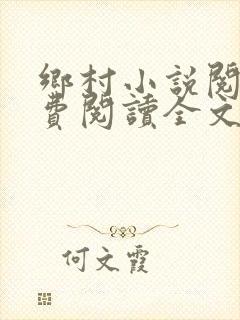 鄉村小說閱
費閱讀全文
何文霞